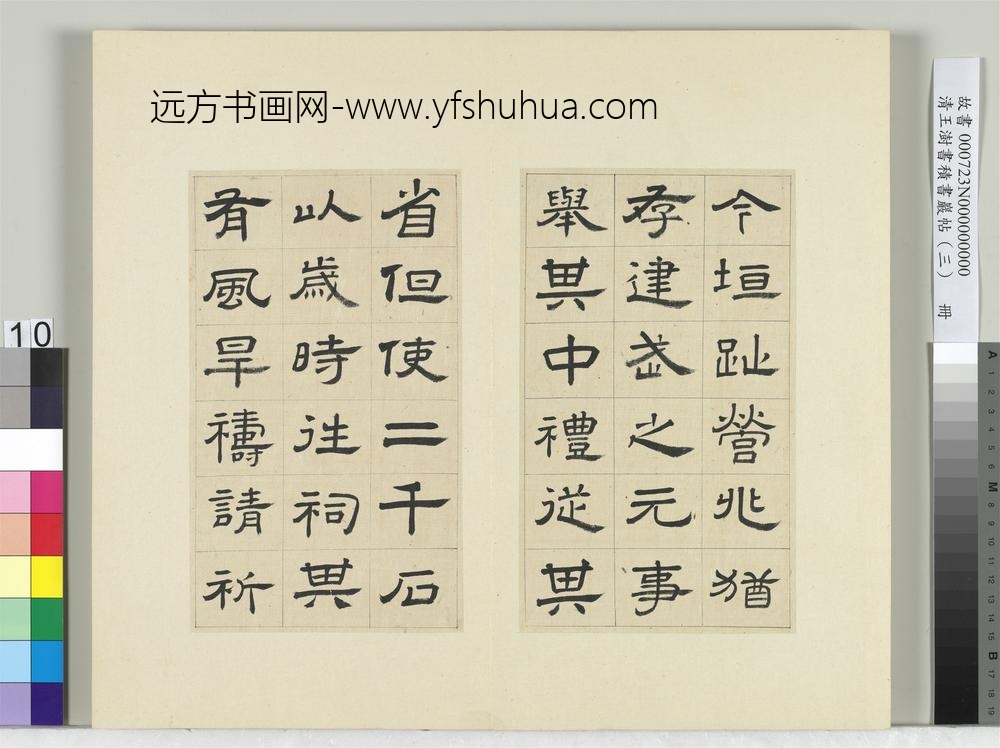 远方书画网-www.yfshuhua.com
今垣趾營兆猶
存建武之元事
舉其中禮從其
省但使二千石
以歲時往祠其
有風旱禱請祈
故書 000723N000000000
清王澍書積書巖帖(三) 冊
10
A 1 2 3 4 5 6 M 8 9 10 11 12 13 14 15 B 17 18 19